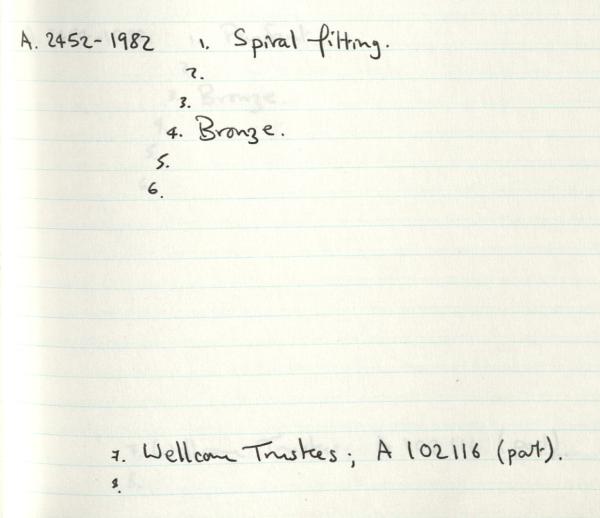 A. 2452-1982 1. Spiral fitting.
2.
3.
4. Bronze.
5.
6.
7. Wellcome Trustees; A 102116 (part).
8.